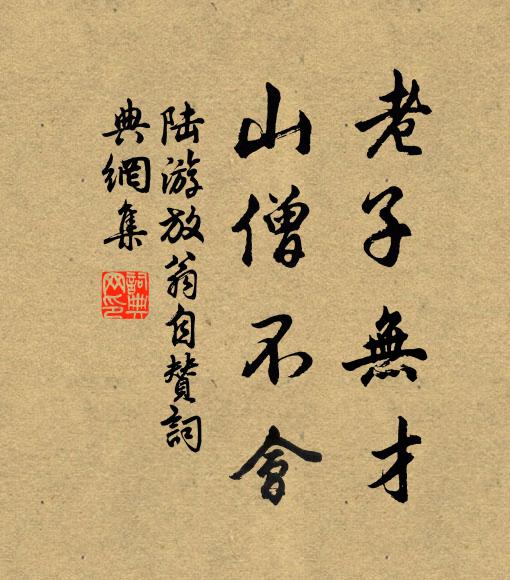 老子無才
山僧不會
陸游放翁自贊詞
典網集
詞典網印